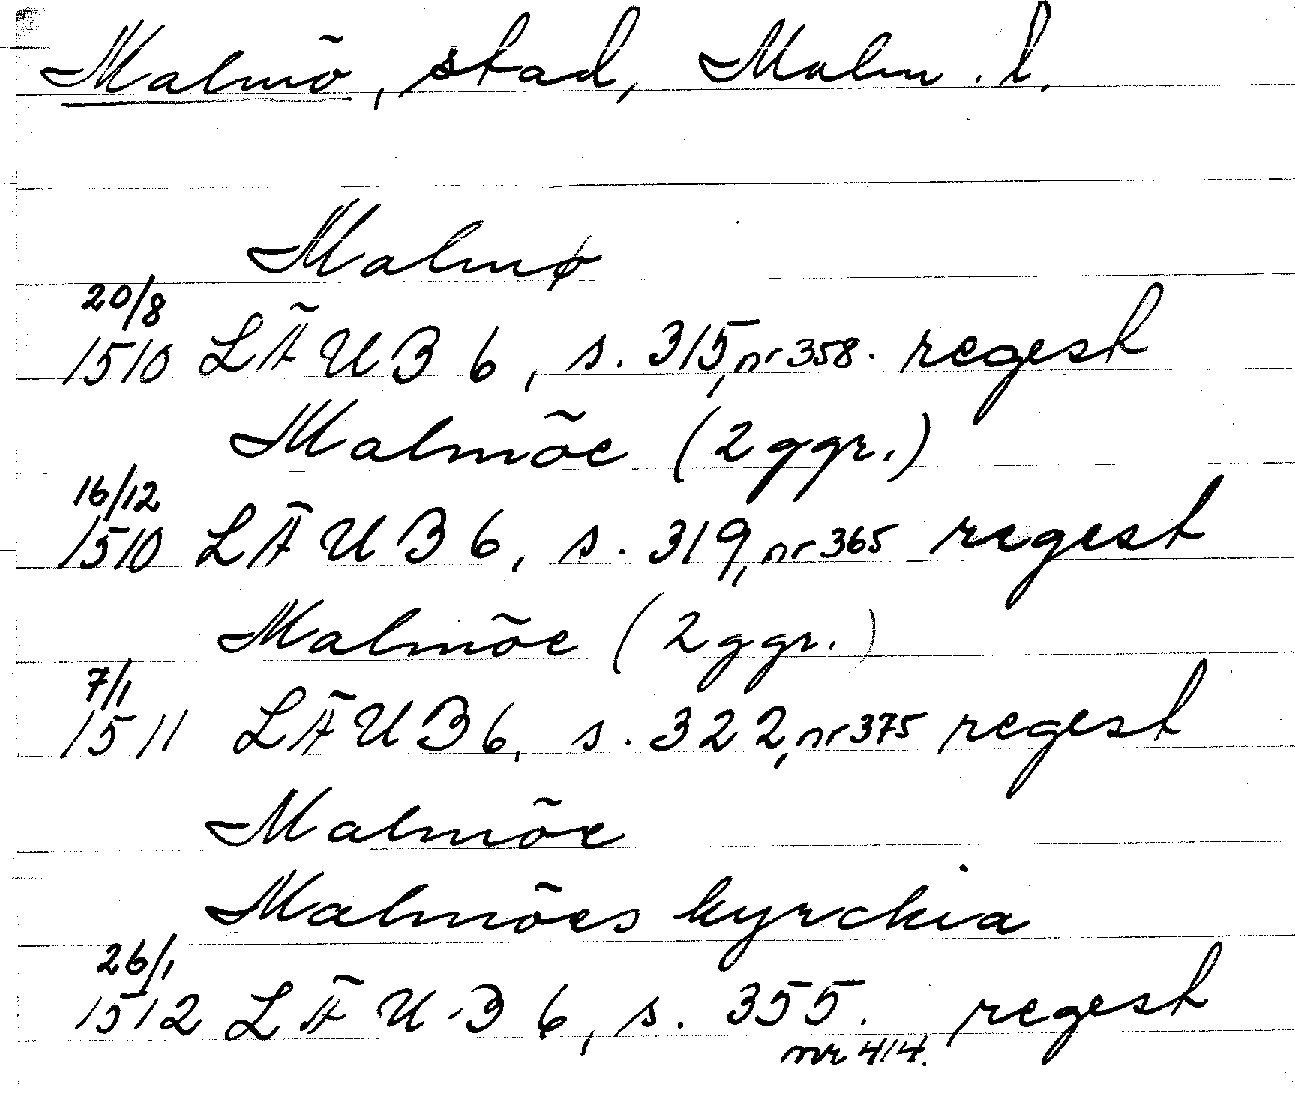 Malmö, stad, Malm. l.
Malmø
20/8
1510 LÄUB 6, s. 315, nr 358. regest
Malmöe (2 ggr.)
16/12
1510 LÄUB 6, s. 319, nr 365 regest
Malmöe (2 ggr.)
7/1
1511 LÄUB 6, s. 322, nr 375 regest
Malmöe
Malmöes kyrchia
26/1
1512 LÄUB 6, s. 355. regest
nr 414.